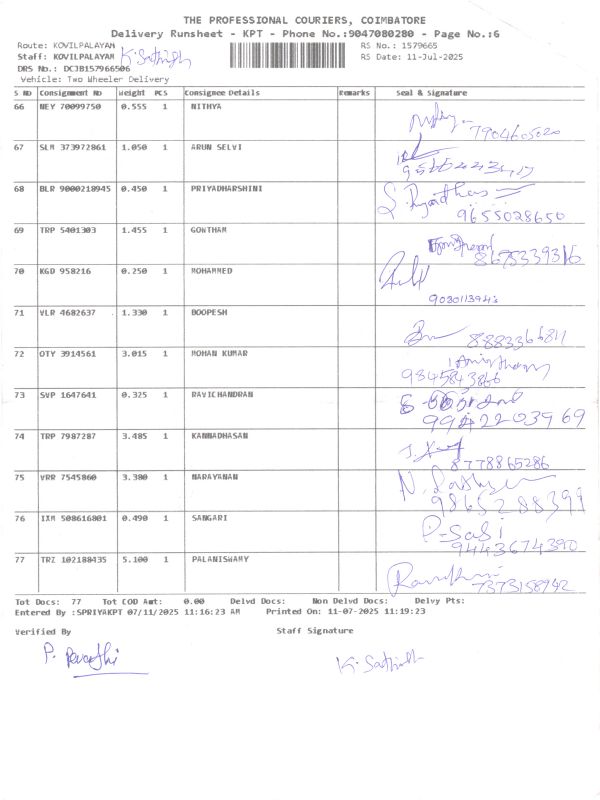 THE PROFESSIONAL COURIERS, COIMBATORE
Delivery Runsheet - KPT - Phone No.:9047080280 - Page No.:6
Route: KOVILPALAYAM RS No.: 1579665
Staff: KOVILPALAYAM K. Sathish RS Date: 11-Jul-2025
DRS No.: DC3B157966506
Vehicle: Two Wheeler Delivery
S No Consignment No Weight PCS Consignee Details Remarks Seal & Signature
66 NEY 70099750 0.555 1 NITHYA
7904605020
67 SLM 373972861 1.050 1 ARUN SELVI
68 BLR 9000218945 0.450 1 PRIYADHARSHINI
9655028650
69 TRP 5401303 1.455 1 GOWTHAM
8675339316
70 KGD 958216 0.250 1 MOHAMMED
71 VLR 4682637 1.330 1 BOOPESH
8883366811
72 OTY 3914561 3.015 1 MOHAN KUMAR
9845843866
73 SVP 1647641 0.325 1 RAVICHANDRAN
9942203969
74 TRP 7987287 3.485 1 KANNADHASAN
8778865286
75 VRR 7545860 3.380 1 NARAYANAN
9865288399
76 IXM 508616801 0.490 1 SANGARI
P-Sasi
9443674390
77 TRZ 102188435 5.100 1 PALANISWAMY
7373158942
Tot Docs: 77 Tot COD Amt: 0.00 Delvd Docs: Non Delvd Docs: Delvy Pts:
Entered By :SPRIYAKPT 07/11/2025 11:16:23 AM Printed On: 11-07-2025 11:19:23
Verified By Staff Signature
P. Revathi K. Sathish